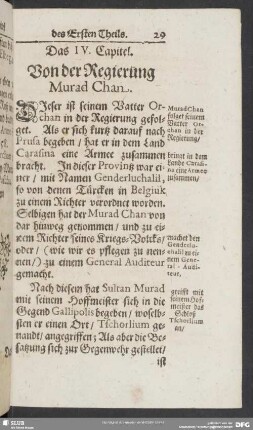 des Ersten Theils. 29
Das IV. Capitel.
Von der Regierung
Murad Chan.
DIeser ist seinem Vatter Or-
chan in der Regierung gefol-
get. Als er sich kurtz darauf nach
Prusa begeben / hat er in dem Land
Carasina eine Armee zusammen
bracht. In dieser Provintz war ei-
ner / mit Namen Genderluchalil,
so von denen Türcken in Belgiuk
zu einem Richter verordnet worden.
Selbigen hat der Murad Chan von
dar hinweg genommen / und zu ei-
nem Richter seines Kriegs-Volcks/
oder / (wie wir es pflegen zu nen-
nen/) zu einem General Auditeur
gemacht.
Nach diesem hat Sultan Murad
mit seinem Hoffmeister sich in die
Gegend Gallipolis begeben / woselb-
sten er einen Ort / Tschorlium ge-
nandt/ angegriffen; Als aber die Be-
satzung sich zur Gegenwehr gestellet/
ist
Murad Chan
folget seinem
Vatter Or-
chan in der
Regierung/
bringt in dem
Lande Carasi-
na eine Armee
zusammen/
machet den
Genderlu-
chalil zu ei-
nem Gene-
ral - Audi-
teur.
greifft mit
seinem Hof-
meister das
Schloß
Tschorlium
an/
SLUB
DFG